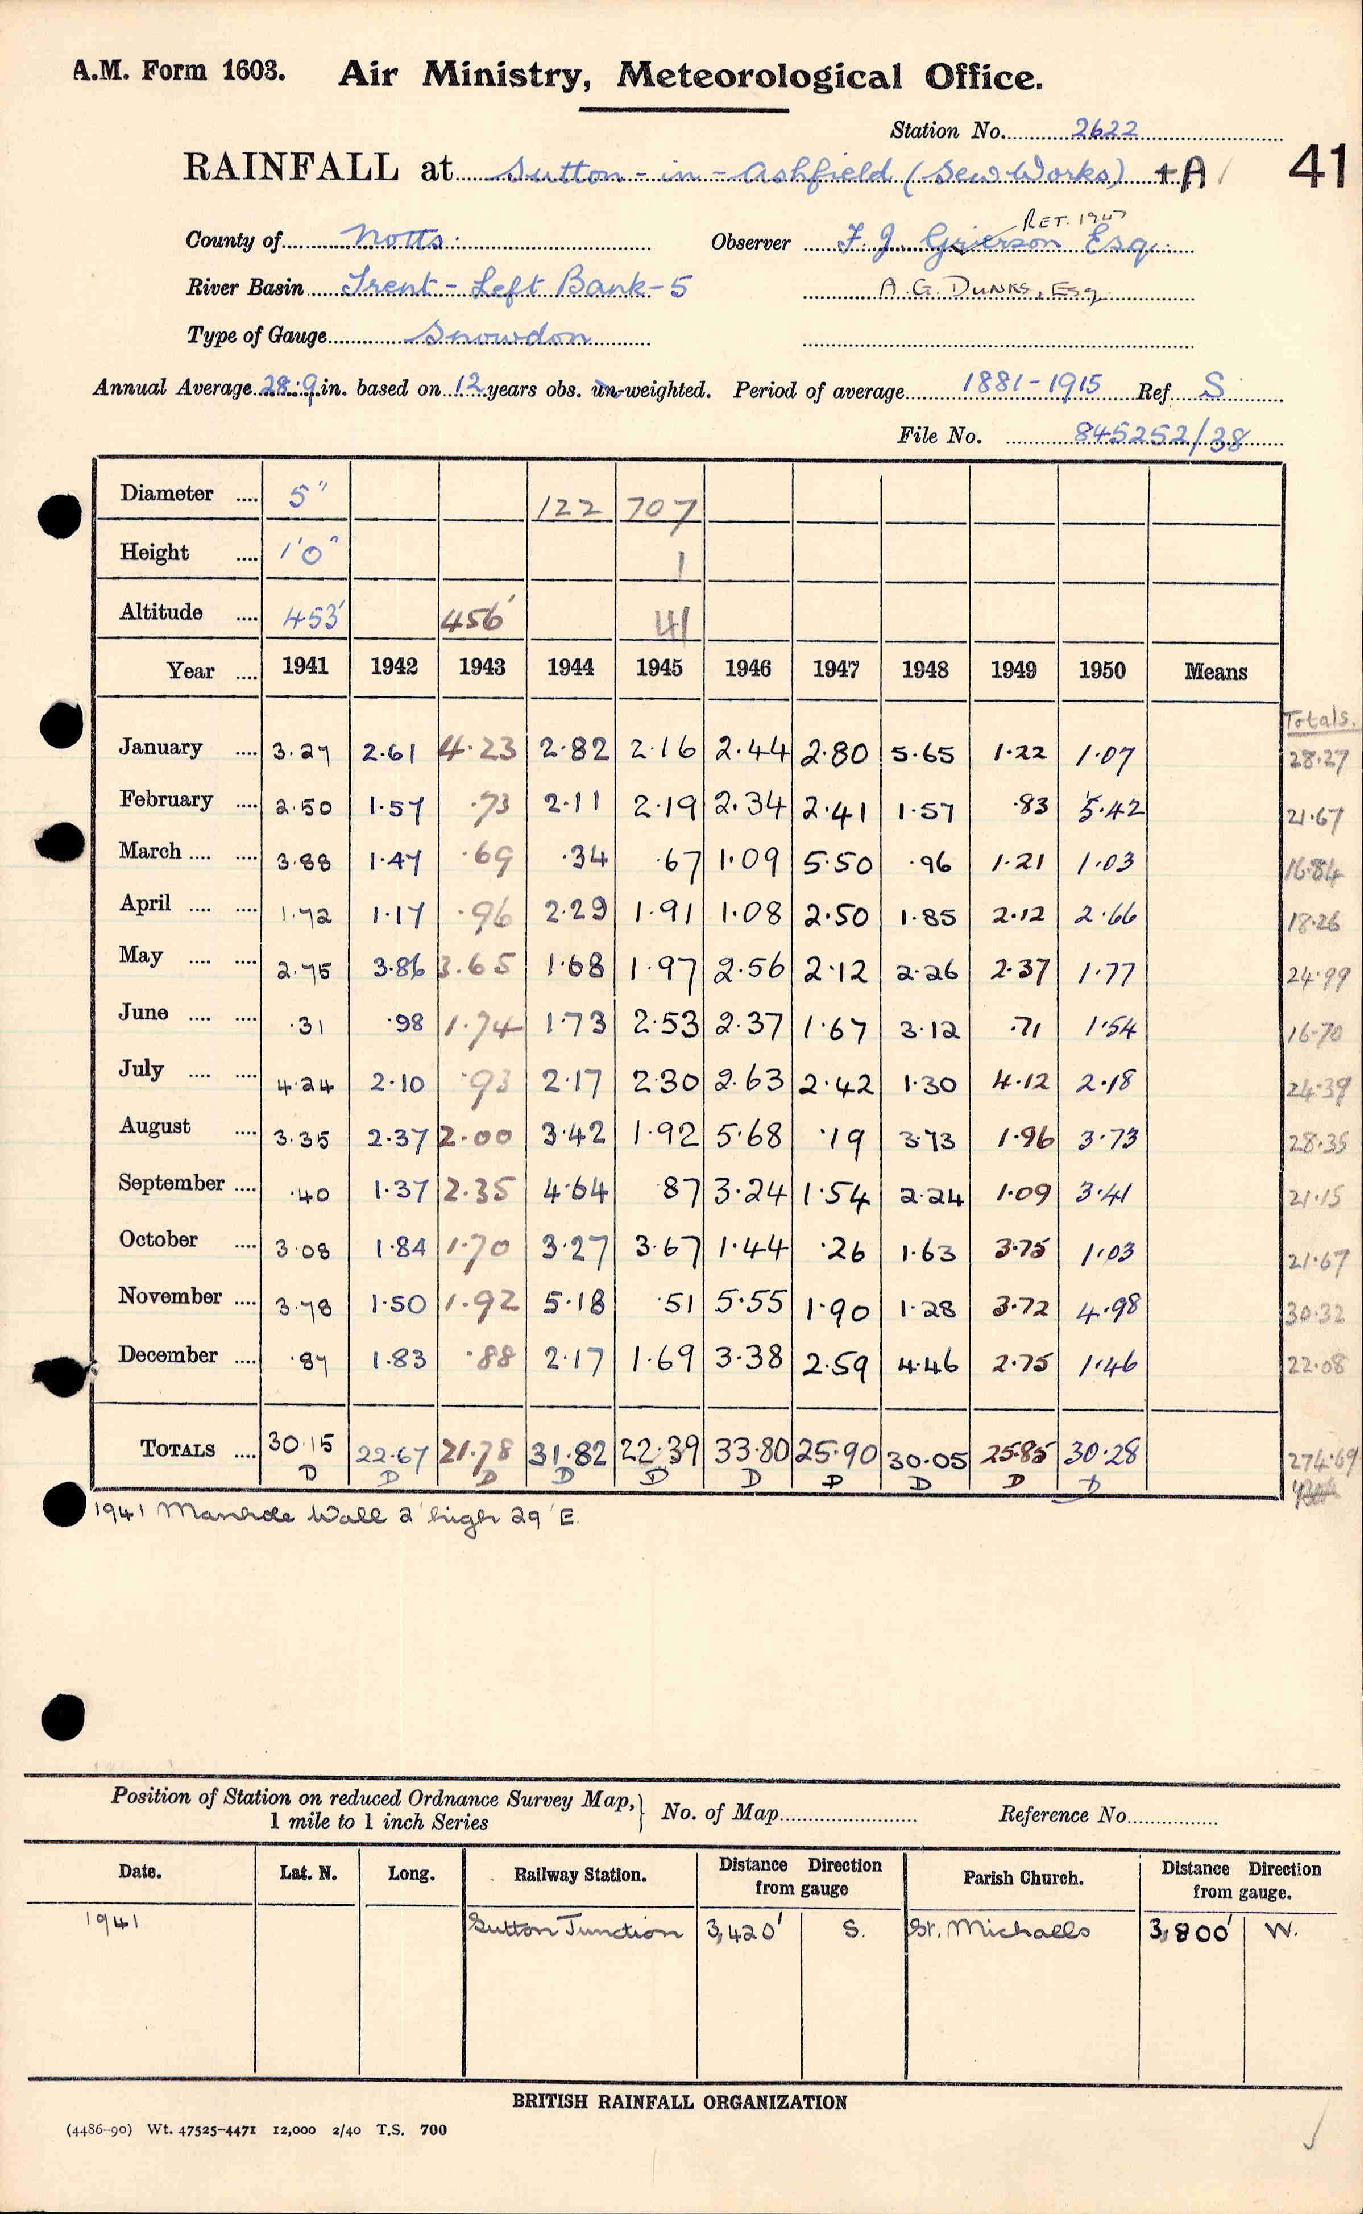 A.M. Form 1603. Air Ministry, Meteorological Office.
Station No. 2622
RAINFALL at Sutton-in-Ashfield (Sew Works) +A 41
RET. 1947
County of Notts. Observer F. J. Grierson Esq.
River Basin Trent - Left Bank - 5 A. G. DUNKS, Esq
Type of Gauge Snowdon
Annual Average 28.9 in. based on 12 years obs. un-weighted. Period of average 1881-1915 Ref. S
File No. 845252/38
Diameter .... 5" 122 707
Height .... 1'0" 1
Altitude .... 453' 456' 41
Year .... 1941 1942 1943 1944 1945 1946 1947 1948 1949 1950 Means
Totals.
January .... 3.27 2.61 4.23 2.82 2.16 2.44 2.80 5.65 1.22 1.07 28.27
February .... 2.50 1.57 .73 2.11 2.19 2.34 2.41 1.57 .83 5.42 21.67
March .... .... 3.88 1.47 .69 .34 .67 1.09 5.50 .96 1.21 1.03 16.84
April .... .... 1.72 1.17 .96 2.29 1.91 1.08 2.50 1.85 2.12 2.66 18.26
May .... .... 2.75 3.86 3.65 1.68 1.97 2.56 2.12 2.26 2.37 1.77 24.99
June .... .... .31 .98 1.74 1.73 2.53 2.37 1.67 3.12 .71 1.54 16.70
July .... .... 4.24 2.10 .93 2.17 2.30 2.63 2.42 1.30 4.12 2.18 24.39
August .... 3.35 2.37 2.00 3.42 1.92 5.68 .19 3.73 1.96 3.73 28.35
September .... .40 1.37 2.35 4.64 .87 3.24 1.54 2.24 1.09 3.41 21.15
October .... 3.08 1.84 1.70 3.27 3.67 1.44 .26 1.63 3.75 1.03 21.67
November .... 3.78 1.50 1.92 5.18 .51 5.55 1.90 1.28 3.72 4.98 30.32
December .... .87 1.83 .88 2.17 1.69 3.38 2.59 4.46 2.75 1.46 22.08
TOTALS .... 30.15 22.67 21.78 31.82 22.39 33.80 25.90 30.05 25.85 30.28 274.69
D D D D D D D D D D
1941 Manhole Wall 2' high 29' E.
Position of Station on reduced Ordnance Survey Map, 1 mile to 1 inch Series } No. of Map Reference No.
Date. Lat. N. Long. Railway Station. Distance Direction from gauge Parish Church. Distance Direction from gauge.
1941 Sutton Junction 3,420' S. St. Michaels 3,800' W.
BRITISH RAINFALL ORGANIZATION
(4486-90) Wt. 47525-4471 12,000 2/40 T.S. 700